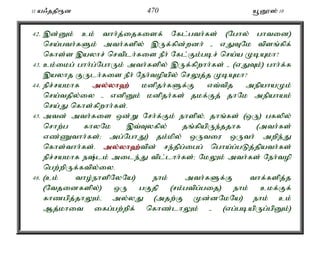 11 யஃததிரூன 470 யூனூஸ் 10
42. இன்னும் உம் வார்த்தைகளைக் கேட்பவர்கள் (போல் பாவனை)
செய்பவர்களும் அவர்களில் இருக்கின்றனர் - எதுவுமே விளங்கிக்
கொள்ள இயலாச் செவிடர்களை நீர் கேட்கும்படிச் செய்ய முடியுமா?
43. உம்மைப் பார்ப்போரும் அவர்களில் இருக்கிறார்கள் - (எதுவும்) பார்க்க
இயலாத குருடர்களை நீர் நேர்வழியில் செலுத்த முடியுமா?
44. நிச்சயமாக அல்லாஹ் மனிதர்களுக்கு எவ்வித அநியாயமும்
செய்வதில்லை - எனினும் மனிதர்கள் தமக்குத் தாமே அநியாயம்
செய்து கொள்கிறார்கள்.
45. அவன் அவர்களை ஒன்று சேர்க்கும் நாளில், தாங்கள் (ஒரு) பகலில்
சொற்ப காலமே இவ்வுலகில் தங்கியிருந்ததாக (அவர்கள்
எண்ணுவார்கள்; அப்போது) தம்மில் ஒருவரை ஒருவர் அறிந்து
கொள்வார்கள். அல்லாஹ்வின் சந்திப்பைப் பொய்ப்படுத்தியவர்கள்
நிச்சயமாக நஷ்டம் அடைந்து விட்டார்கள்; மேலும் அவர்கள் நேர்வழி
பெற்றிருக்கவில்லை.
46. (உம் வாழ்நாளிலேயே) நாம் அவர்களுக்கு வாக்களித்த
(வேதனைகளில்) ஒரு பகுதி (சம்பவிப்பதை) நாம் உமக்குக்
காண்பித்தாலும், அல்லது (அதற்கு முன்னமேயே) நாம் உம்
ஆத்மாவை கைப்பற்றிக் கொண்டாலும் - (எப்படியிருப்பினும்)